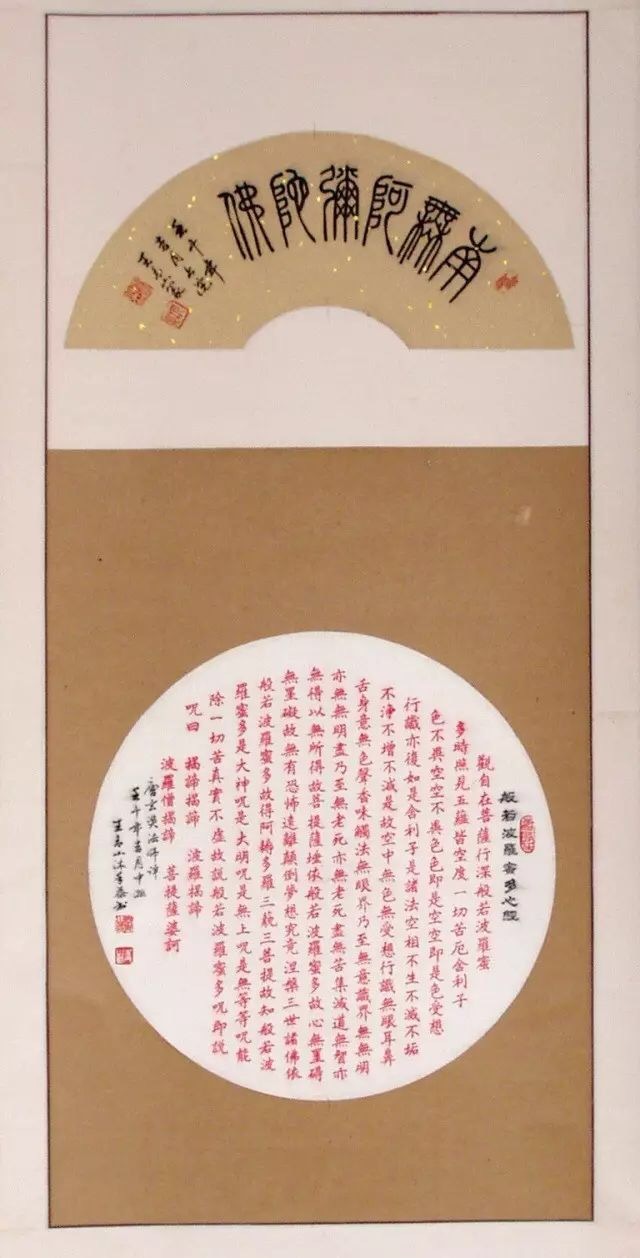 南無阿彌陀佛
壬午年
般若波羅蜜多心經
觀自在菩薩行深般若波羅蜜
多時照見五蘊皆空度一切苦厄舍利子
色不異空空不異色色即是空空即是色受想
行識亦復如是舍利子是諸法空相不生不滅不垢
不淨不增不減是故空中無色無受想行識無眼耳鼻
舌身意無色聲香味觸法無眼界乃至無意識界無無明
亦無無明盡乃至無老死亦無老死盡無苦集滅道無智亦
無得以無所得故菩提薩埵依般若波羅蜜多故心無罣礙
無罣礙故無有恐怖遠離顛倒夢想究竟涅槃三世諸佛依
般若波羅蜜多故得阿耨多羅三藐三菩提故知般若波
羅蜜多是大神呪是大明呪是無上呪是無等等呪能
除一切苦真實不虛故說般若波羅蜜多呪即說
呪曰 揭諦揭諦 波羅揭諦
波羅僧揭諦 菩提薩婆訶
唐玄奘法師譯
壬午年